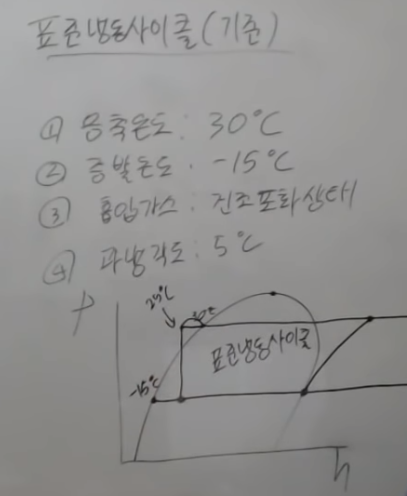 표준냉동사이클(기준)
① 응축온도: 30℃
② 증발온도: -15℃
③ 흡입가스: 건조포화상태
④ 과냉각도: 5℃
P
25℃
30℃
표준냉동사이클
-15℃
h